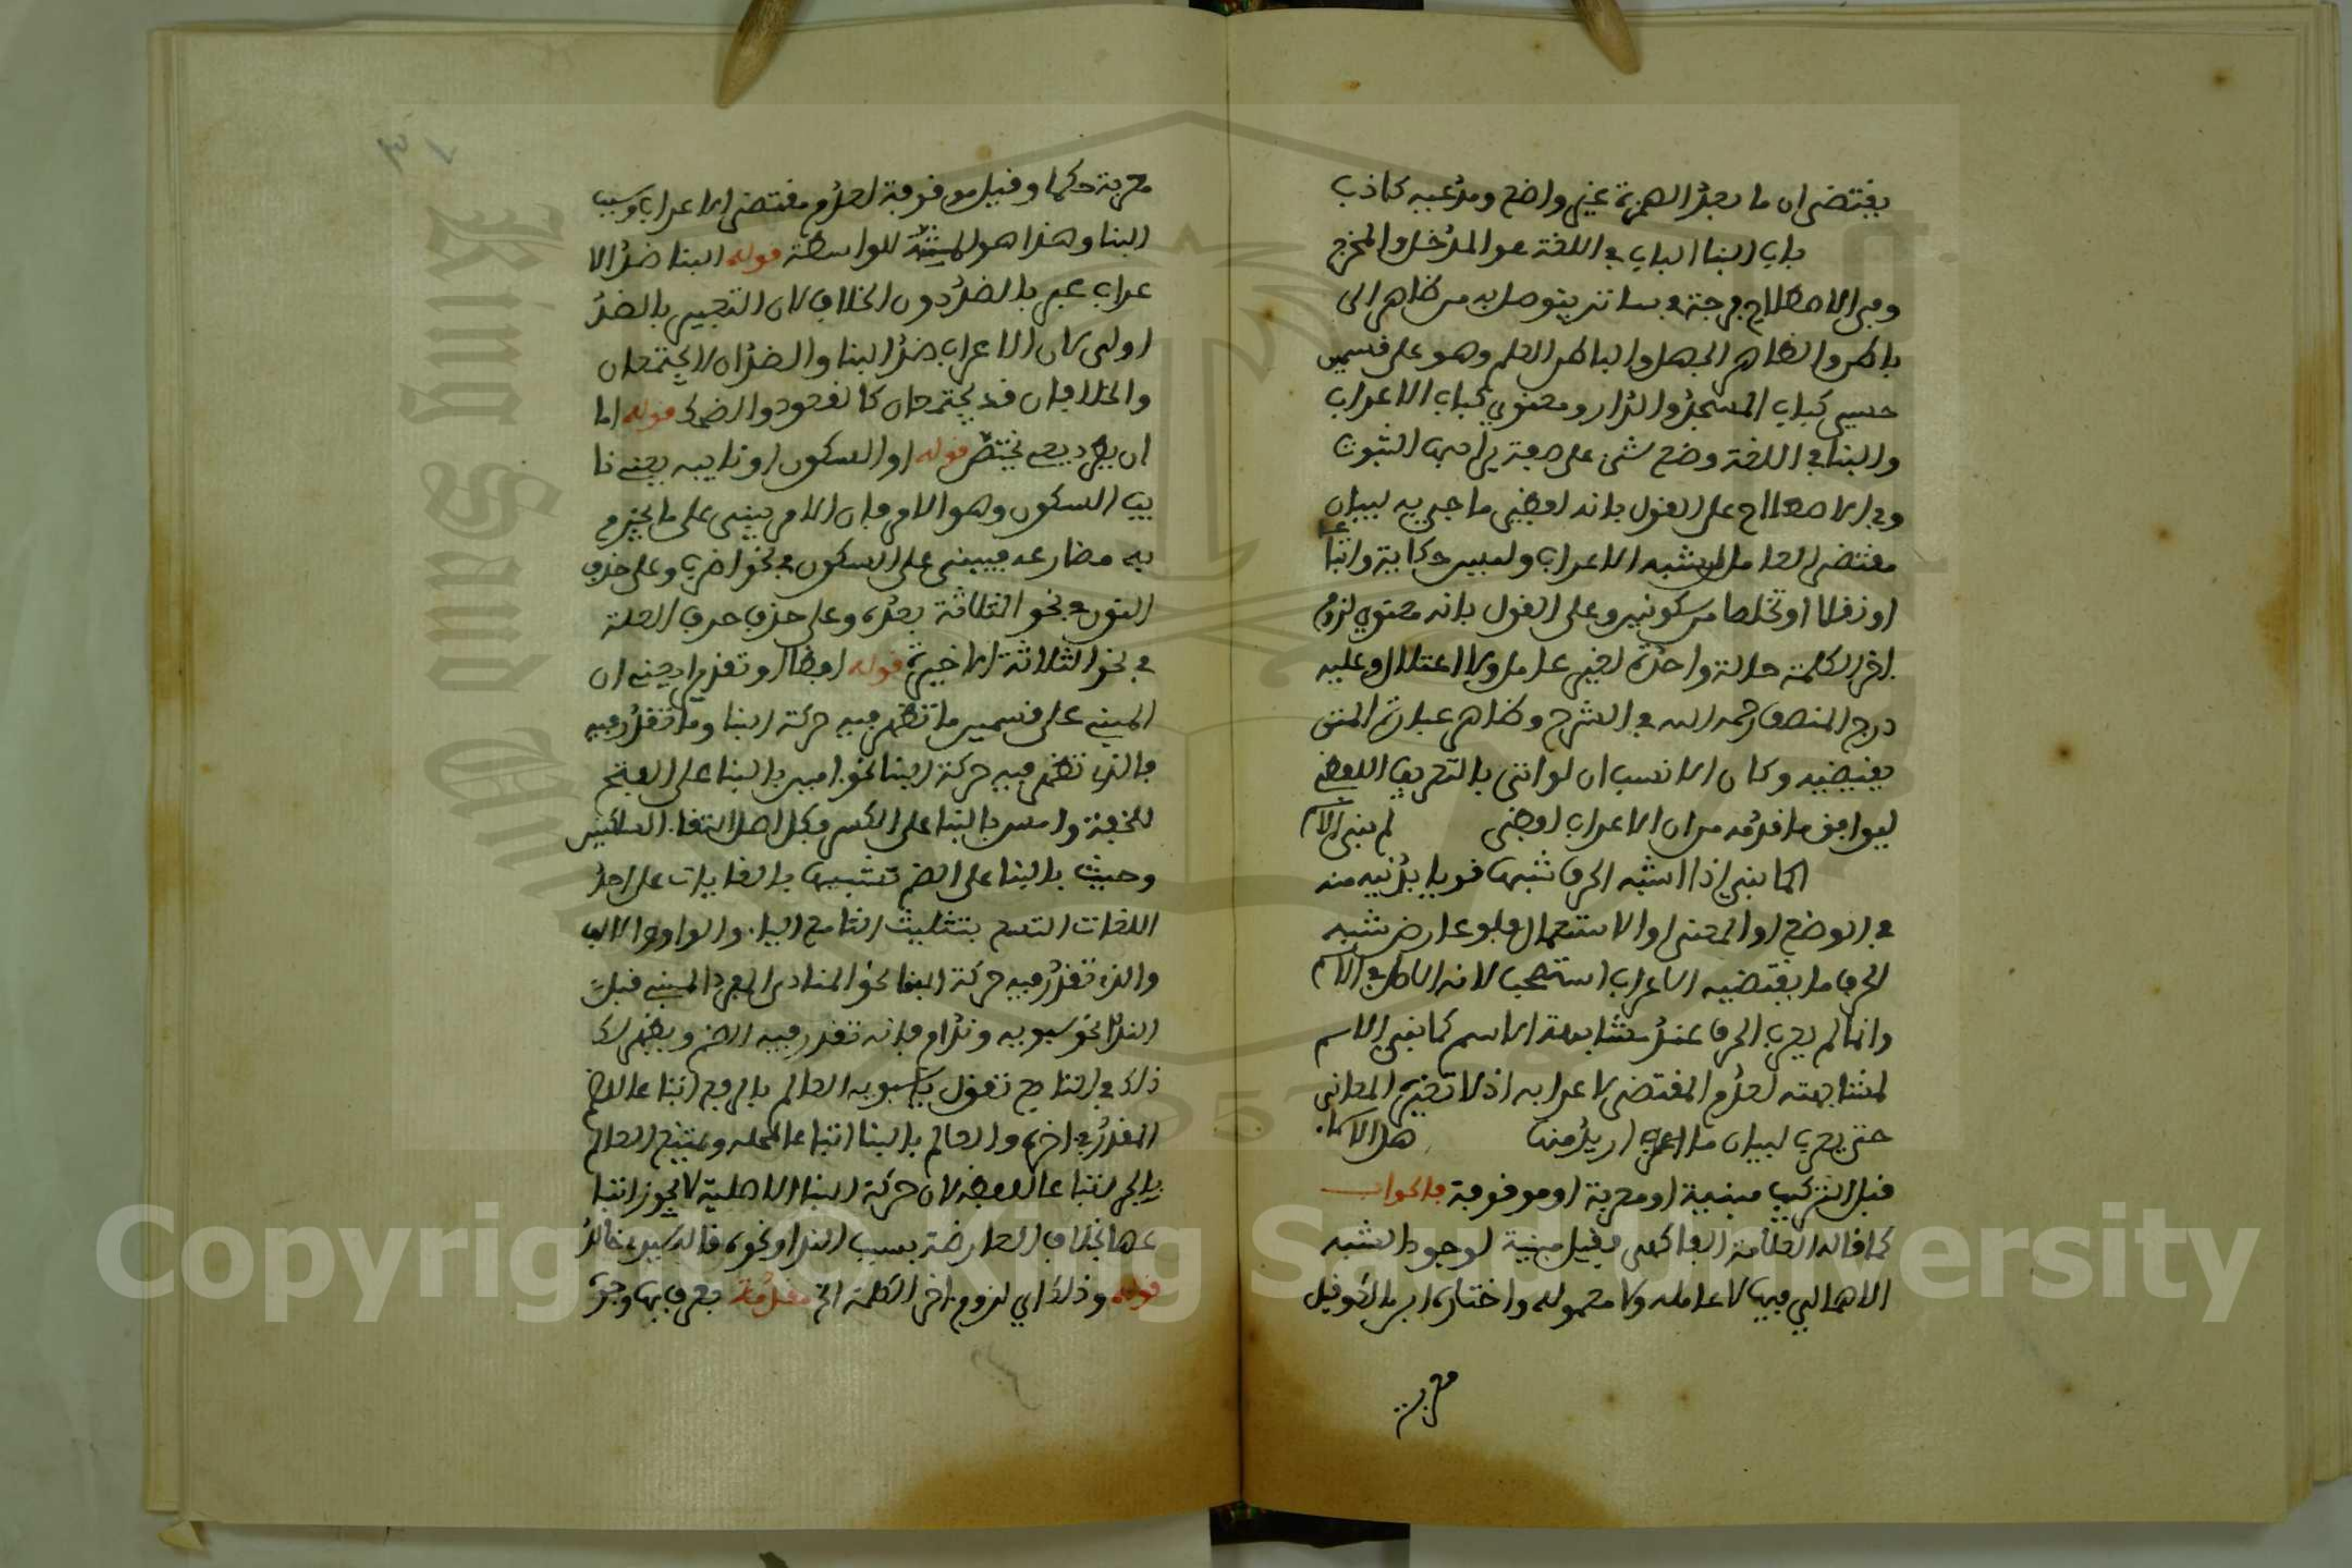 يقتضى ان ما بعد الهمزة غير واضح ومدعيه كاذب
باب البنا الباب في اللغة هو المدخل والمخرج
وفي الاصطلاح فرجة في ساتر يتوصل به من ظاهر الى
باطن والظاهر الجهل والباطن العلم وهو على قسمين
حسي كباب المسجد والدار ومعنوي كباب الاعراب
والبنا في اللغة وضع شي على صفة يراد بها الثبوت
وفي الاصطلاح على القول بانه لفظي ما جي به لبيان
مقتضى العامل من شبه الاعراب وليس حكاية واتباعا
او نقلا او تخلصا من سكونين وعلى القول بانه معنوي لزوم
اخر الكلمة حالة واحدة لغير عامل ولا اعتلال وعليه
درج المصنف رحمه الله في الشرح وظاهر عبارة المتن
يقتضيه وكان الانسب ان لو اتى بالتعريف اللفظي
ليوافق ما قدمه من ان الاعراب لفظي لم بني الاسم
انما بني اذا اشبه الحرف شبها قويا يدنيه منه
في الوضع او المعنى او الاستعمال فلو عارض شبه
الحرف ما يقتضيه الاعراب استصحب لانه الاصل في الاسم
وانما لم يعرب الحرف عند مشابهة الاسم كما بني الاسم
لمشابهته لعدم المقتضى لاعرابه اذ لا تعتريه المعاني
حتى يعرب لبيان ما اعرب اريد منها هل الاسما
قبل التركيب مبنية او معربة او موقوفة فالجواب
كما قاله العلامة الفاكهي فقيل مبنية لوجود الشبه
الاهمالي فيها لا عاملة ولا معمولة واختاره ابن مالك وقيل
معربة
٣١
معربة حكما وقيل موقوفة لعدم مقتضى الاعراب وسبب
البنا وهذا هو المثبت للواسطة قوله البنا ضد الا
عراب عبر بالضد دون الخلاف لان التعبير بالضد
اولى لان الاعراب ضد البنا والضدان لا يجتمعان
والخلافان قد يجتمعان كالقعود والضحك قوله اما
ان يطرد يعني يختص قوله او السكون او نايبه يعني نا
يب السكون وهو الامر فان الامر يبنى على ما يجزم
به مضارعه فيبنى على السكون في نحو اضرب وعلى حذف
النون في نحو الثلاثة بعده وعلى حذف حرف العلة
في نحو الثلاثة الاخيرة قوله لفظا او تقديرا يعني ان
المبني على قسمين ما تظهر فيه حركة البنا وما تقدر فيه
فالذي تظهر فيه حركة البنا نحو اين بالبنا على الفتح
للخفة وامس بالبنا على الكسر فكل اصل التقا الساكنين
وحيث بالبنا على الضم تشبيها بالغايات على احد
اللغات التسع بتثليث الثا مع اليا والواو والالف
والذي تقدر فيه حركة البنا نحو المنادى المفرد المبني قبل
الندا نحو سيبويه وحذام فانه تقدر فيه الضم ويظهر لك
ذلك في التابع تقول يا سيبويه العالم بالرفع اتباعا للضم
المقدر في اخره والعالم بالبنا اتباعا لمحله ويمتنع العالم
بالجر اتباعا للفظه لان حركة البنا الاصلية لا يجوز اتبا
عها بخلاف العارضة بسبب الندا ونحوه قاله سيدي خالد
قوله وذلك اي لزوم اخر الكلمة الخ مقدمة يعرف بها وجوه
Copyright © King Saud University
King Saud University
1957